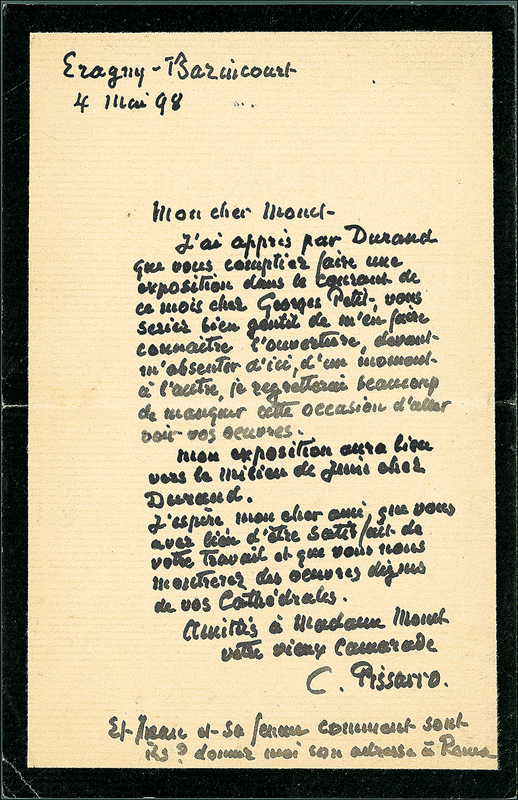 Eragny-Bazincourt
4 Mai 98
Mon cher Monet-
J'ai appris par Durand
que vous comptiez faire une
exposition dans le courant de
ce mois chez Georges Petit, vous
seriez bien gentil de m'en faire
connaitre l'ouverture, devant
m'absenter d'ici, d'un moment
à l'autre, je regretterai beaucoup
de manquer cette occasion d'aller
voir vos oeuvres.
Mon exposition aura lieu
vers le milieu de Juin chez
Durand.
J'espère mon cher ami, que vous
avez lieu d'être satisfait de
votre travail et que vous nous
montrerez des oeuvres dignes
de vos Cathédrales.
Amitiés à Madame Monet
votre vieux camarade
C. Pissarro.
Et Jean et sa femme comment sont-
ils? donnez moi son adresse à Rouen